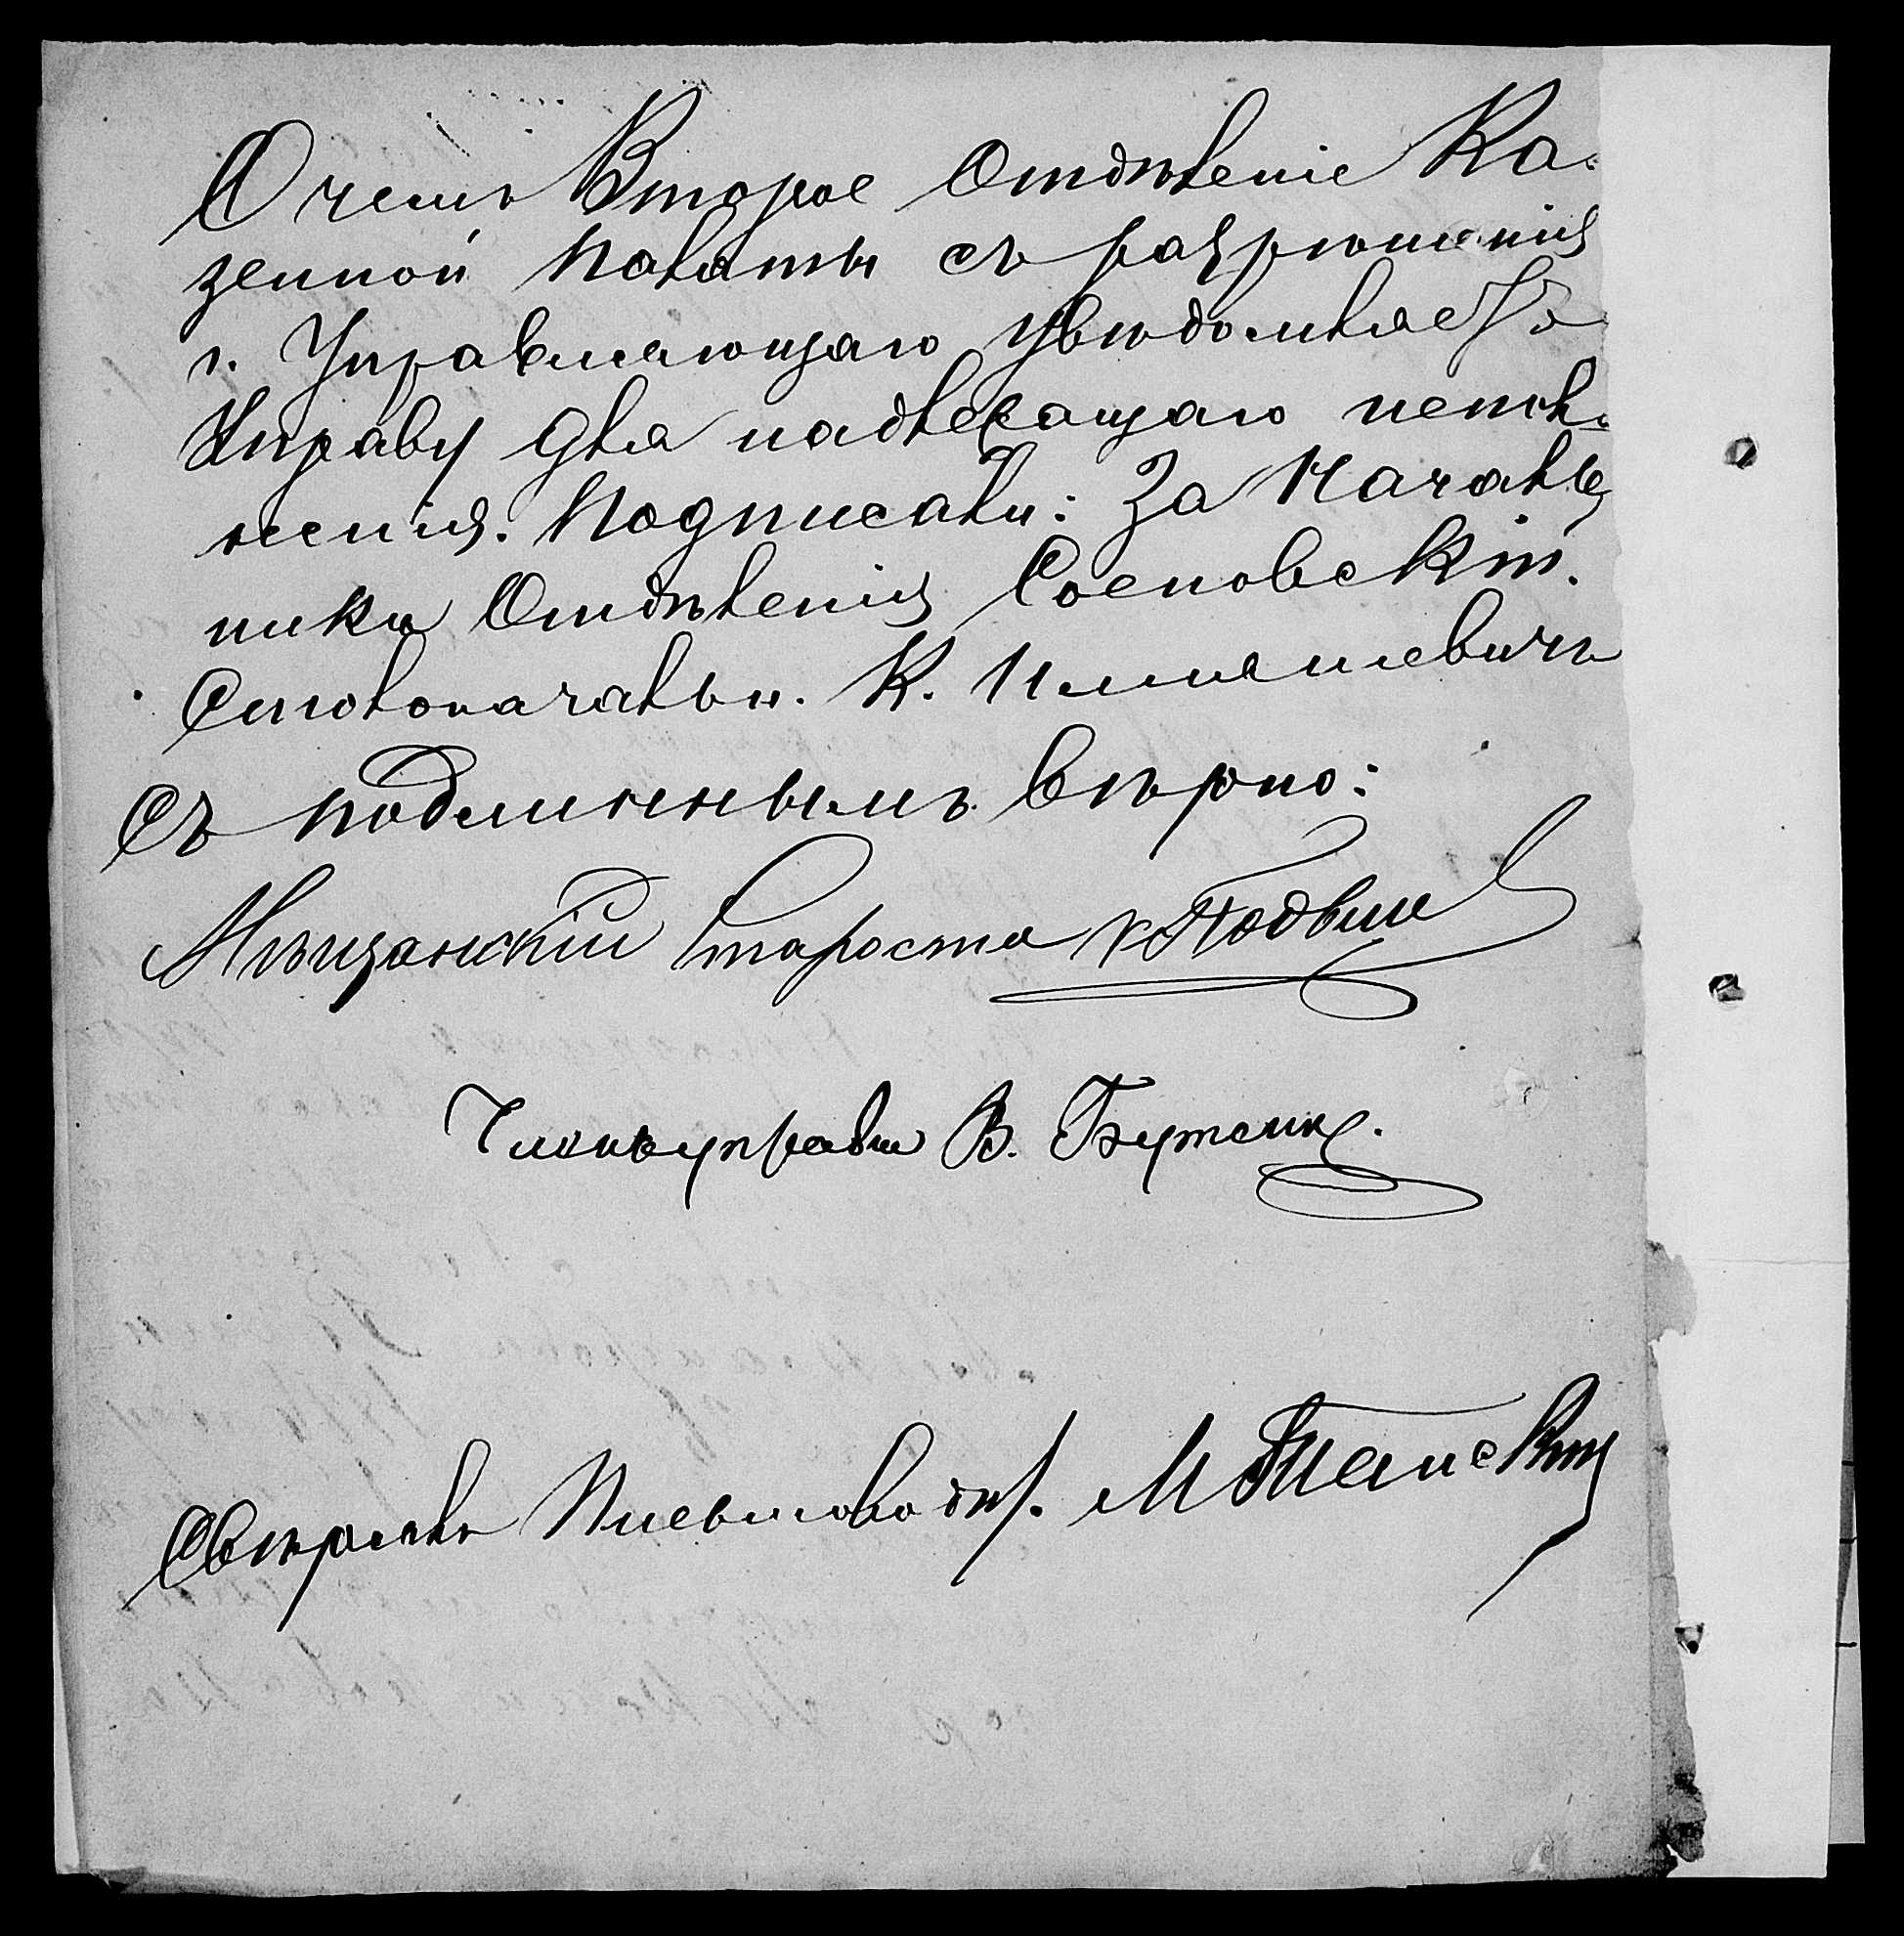 О чемъ Второе Отдѣленіе Ка-
зенной Палаты съ разрѣшенія
г. Управляющаго увѣдомляетъ
Управу для надлежащаго испол-
ненія. Подписали: За Началь-
ника Отдѣленія Сосновскій.
Столоначальн. К.
Съ подлиннымъ вѣрно:
Мѣщанскій Староста
Членъ управы В. Бутенко.
Свѣрялъ Письмоводит.